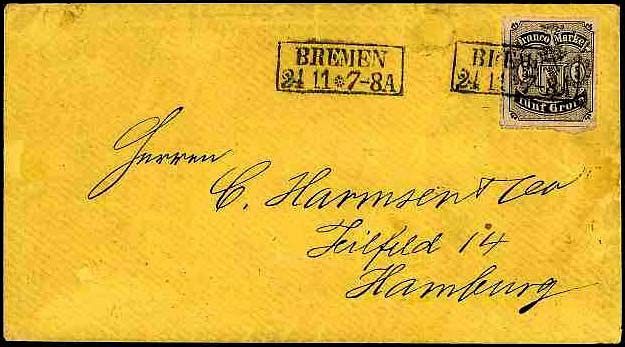 BREMEN
24 11 * 7-8A
24 11 * 7
Franco Marke
Fünf Grote
Herren
C. Harmsen & Co
Teilfeld 14
Hamburg